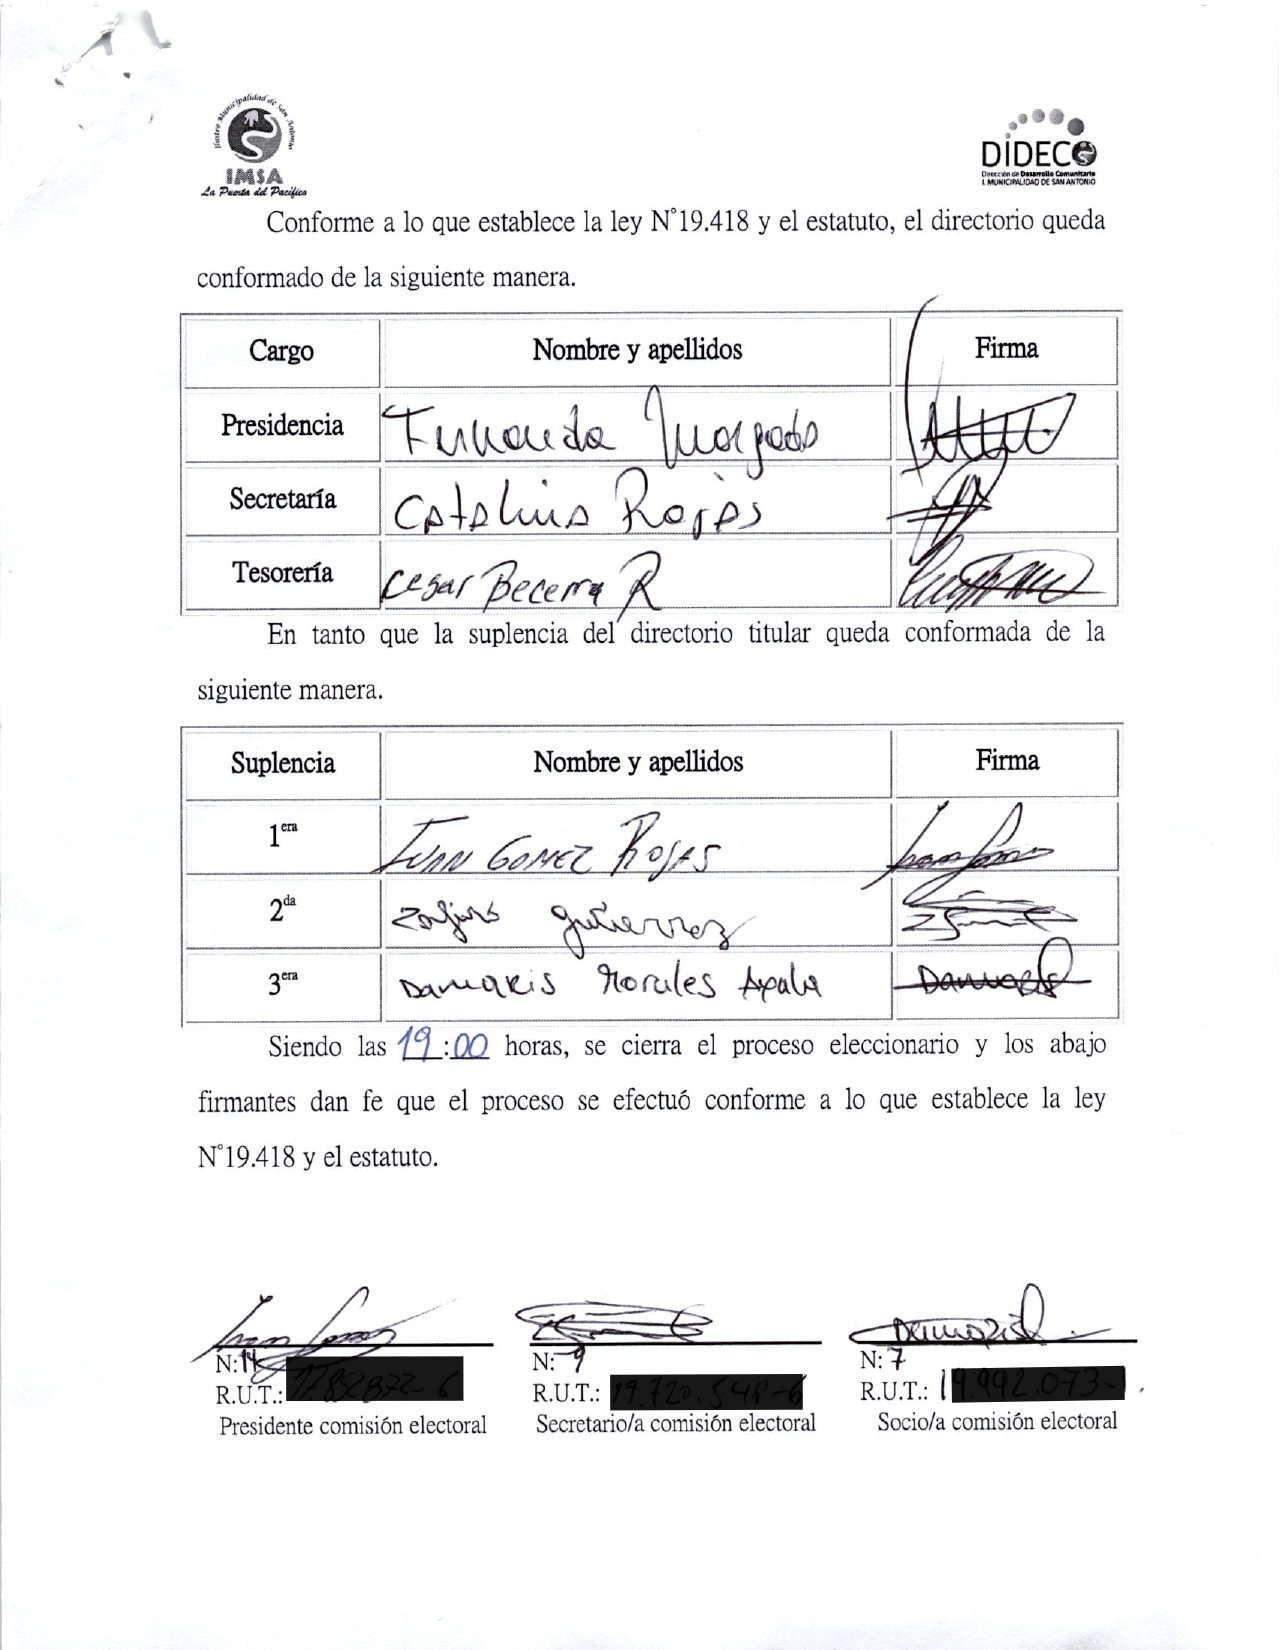 Ilustre Municipalidad de San Antonio
IMSA
La Puerta del Pacífico
DIDECO
Dirección de Desarrollo Comunitario
I. MUNICIPALIDAD DE SAN ANTONIO
Conforme a lo que establece la ley N°19.418 y el estatuto, el directorio queda
conformado de la siguiente manera.
Cargo Nombre y apellidos Firma
Presidencia Fernanda Morgado
Secretaría Catalina Rojas
Tesorería Cesar Becerra R
En tanto que la suplencia del directorio titular queda conformada de la
siguiente manera.
Suplencia Nombre y apellidos Firma
1era IVAN GOMEZ ROJAS Ivan Gomez
2da Gutierrez
3era Damaris Morales Ayala Damaris
Siendo las 19:00 horas, se cierra el proceso eleccionario y los abajo
firmantes dan fe que el proceso se efectuó conforme a lo que establece la ley
N°19.418 y el estatuto.
Ivan Gomez Damaris
N: 14 N: 9 N: 7
R.U.T.: R.U.T.: R.U.T.:
Presidente comisión electoral Secretario/a comisión electoral Socio/a comisión electoral